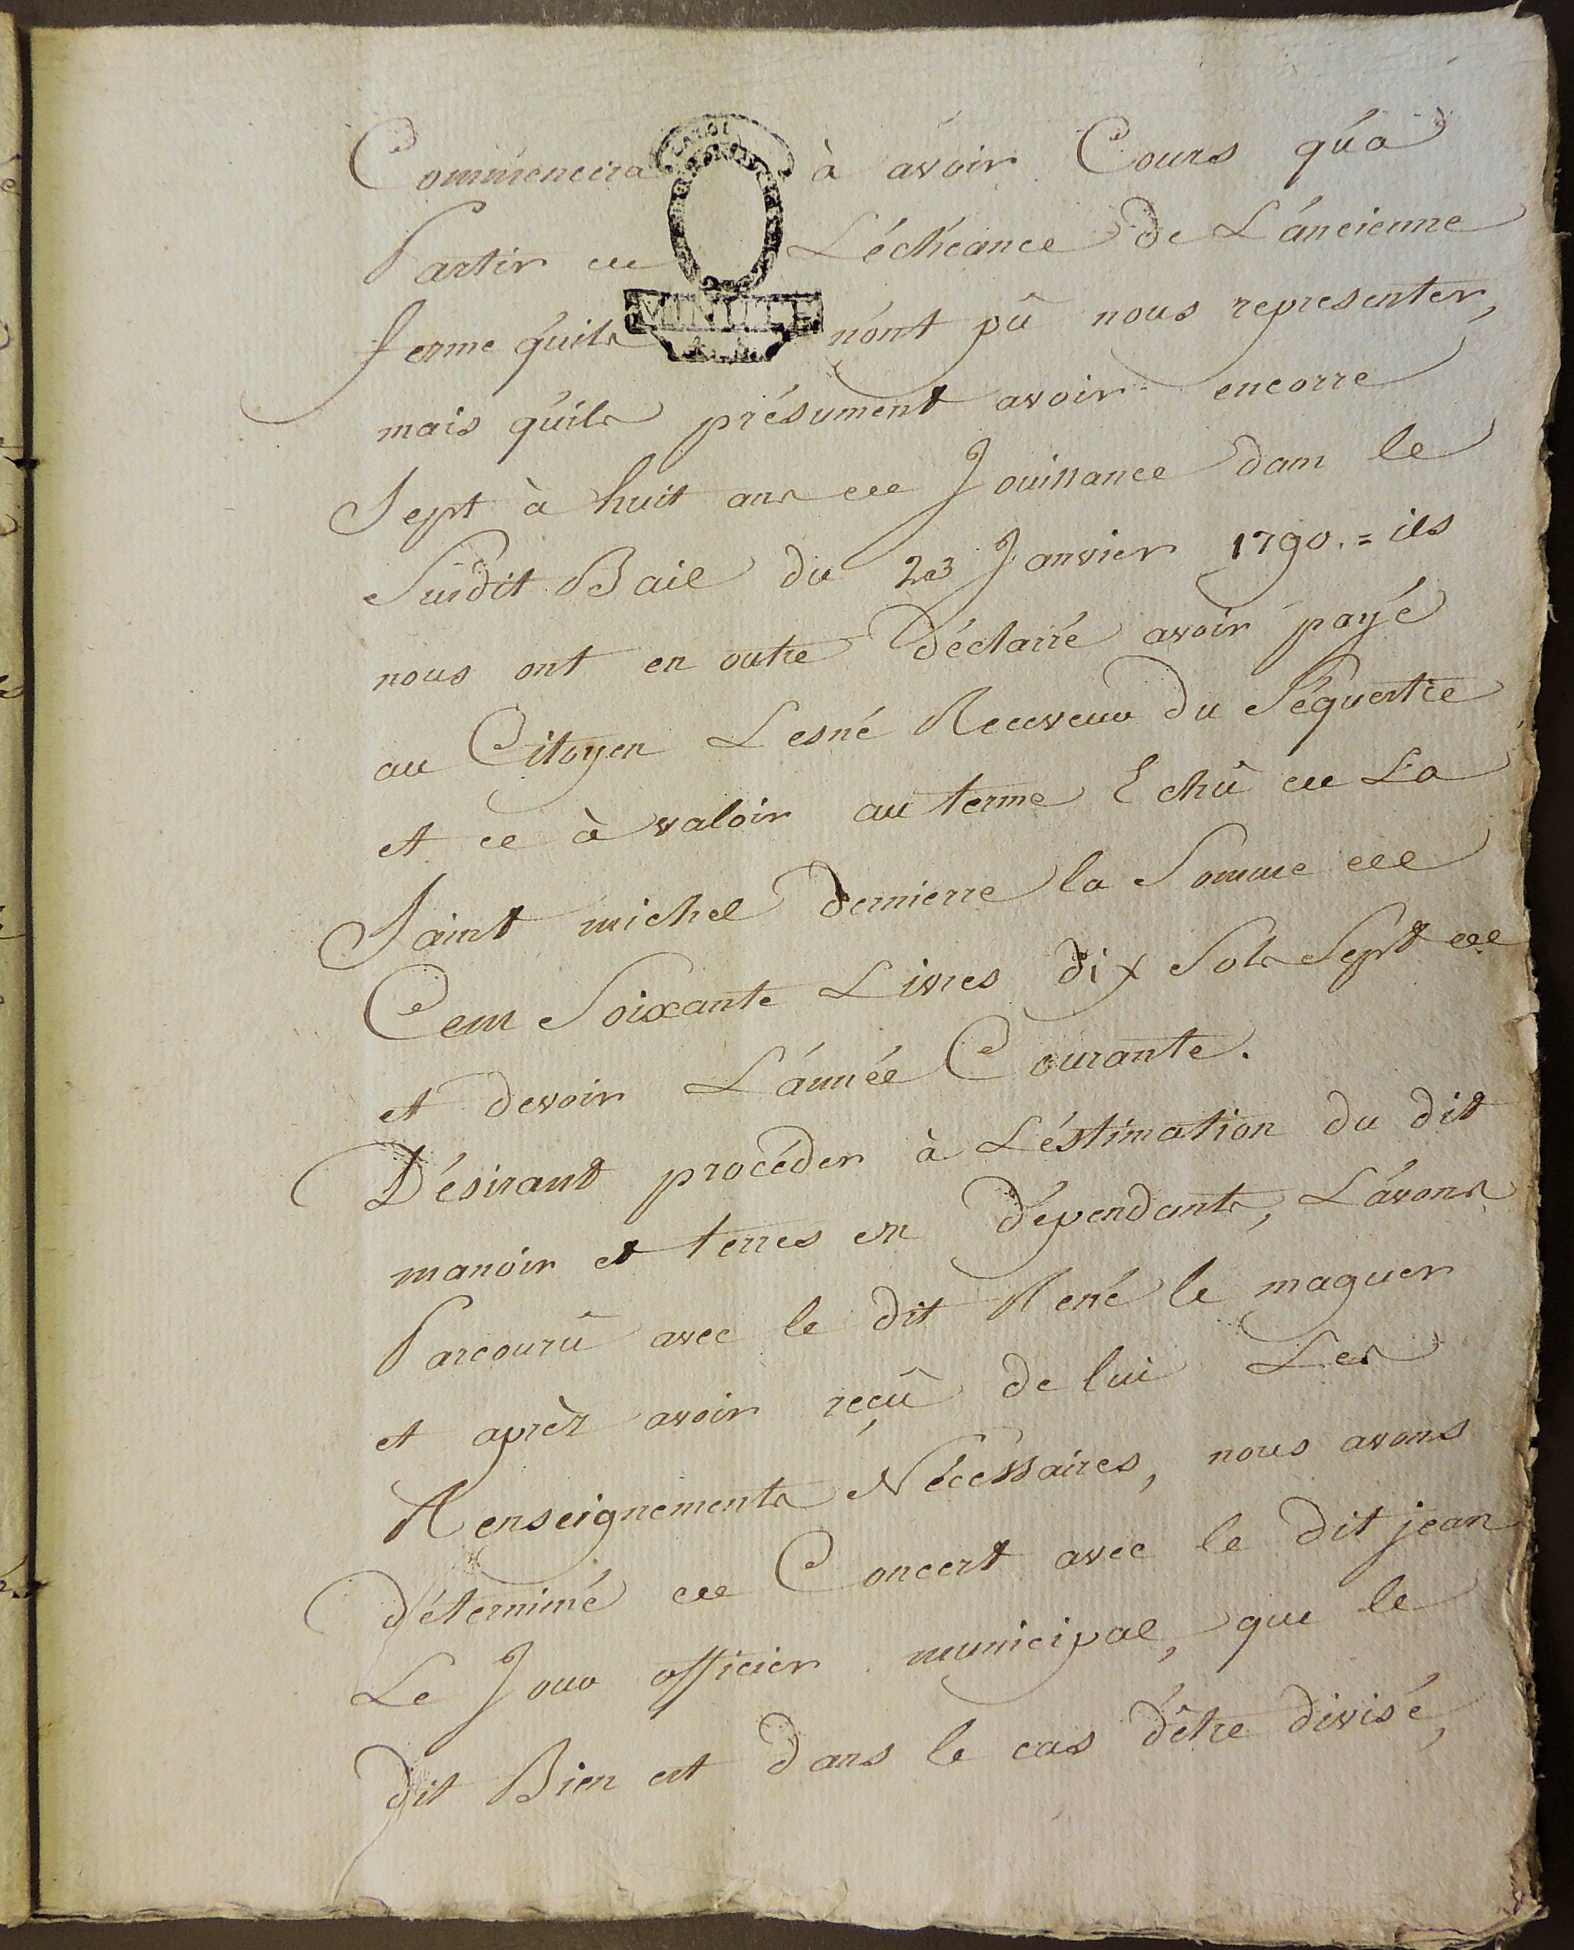 Commencera à avoir Cours qu'a
Partir de L'échéance de L'ancienne
ferme quils n'ont pû nous representer,
MINUTE
mais quils présument avoir encorre
Sept à huit ans de Jouissance dans le
Susdit Bail du 23 Janvier 1790. = ils
nous ont en outre déclarré avoir payé
au Citoyen Lesné Receveur du Séquestre
et ce à valoir au terme Echû de La
Saint michel dernierre la Somme de
Cent Soixante Livres dix Sols Sept de
et devoir L'année Courante.
Désirant procéder à L'éstimation du dit
manoir et terres en dépendants, L'avons
Parcourû avec le dit René le maguer
et après avoir reçû de lui Les
Renseignements Nécessaires, nous avons
déterminé de Concert avec le dit jean
Le Jour officier municipal, que le
dit Bien est dans le cas d'être divisé,